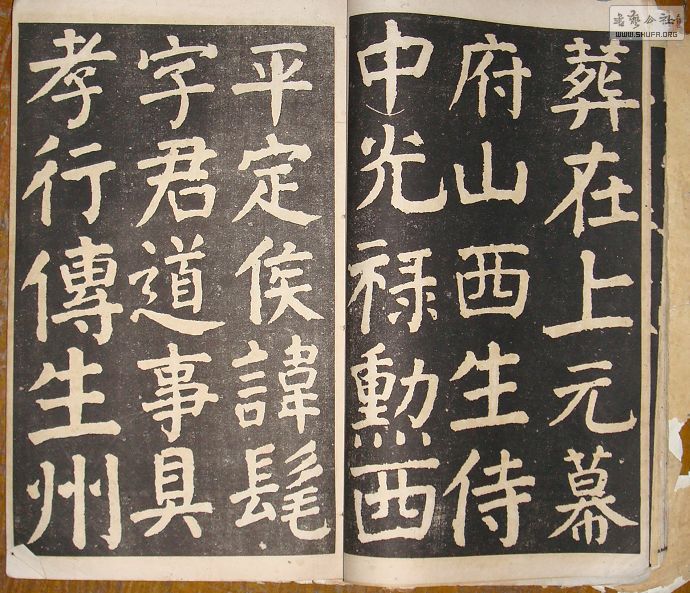 葬在上元幕
府山西生侍
中光禄勳西
平定侯諱髦
字君道事具
孝行傳生州
书艺公社
WWW.SHUFA.ORG